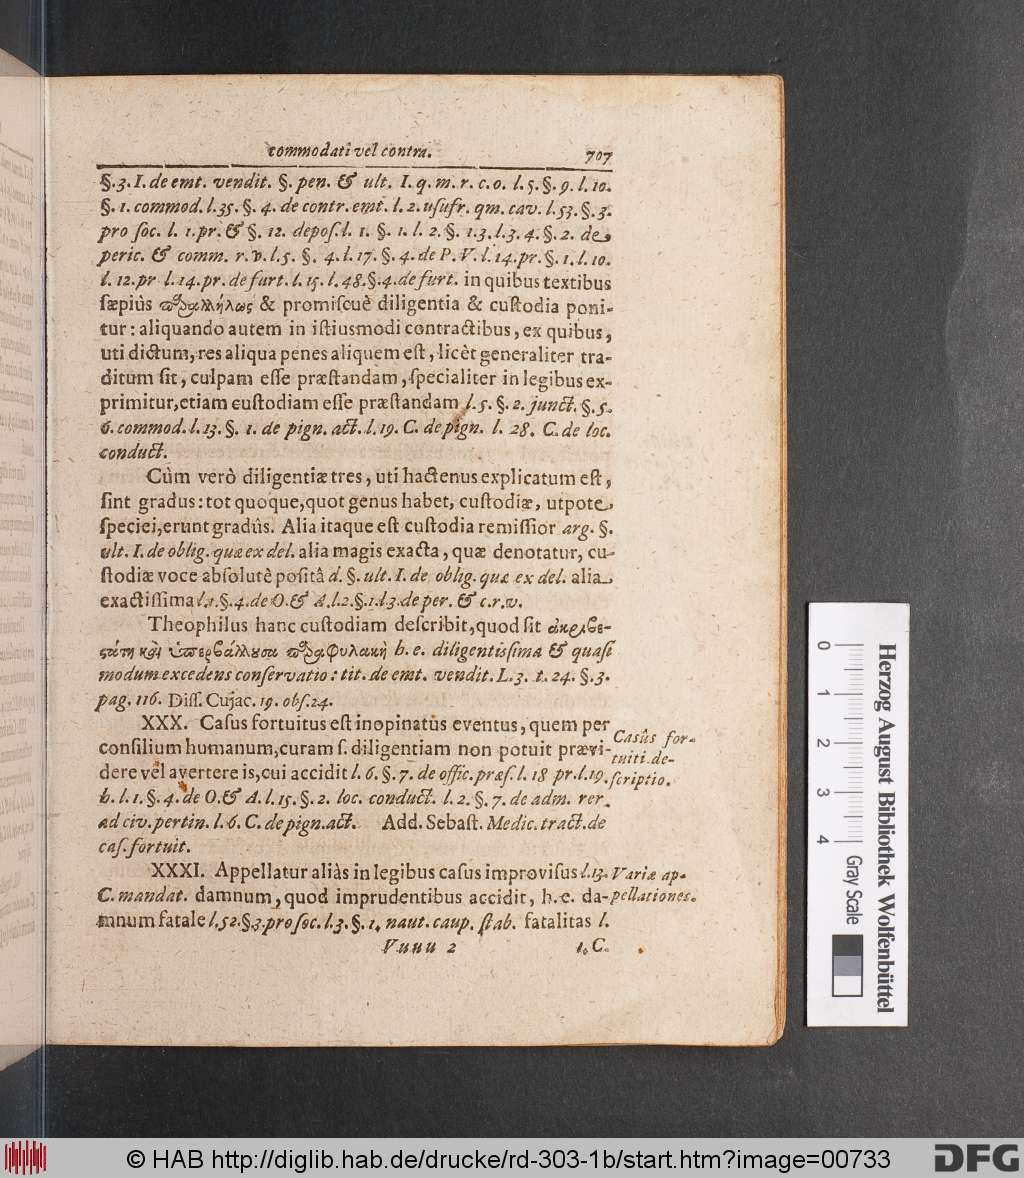 commodati vel contra. 707
§. 3. I. de emt. vendit. §. pen. & ult. I. q. m. r. c. o. l. 5. §. 9. l. 10.
§. 1. commod. l. 35. §. 4. de contr. emt. l. 2. usufr. qm. cav. l. 53. §. 3.
pro soc. l. 1. pr. & §. 12. depos. l. 1. §. 1. l. 2. §. 1. 3. l. 3. 4. §. 2. de
peric. & comm. r. v. l. 5. §. 4. l. 17. §. 4. de P. V. l. 14. pr. §. 1. l. 10.
l. 12. pr l. 14. pr. de furt. l. 15. l. 48. §. 4. de furt. in quibus textibus
sæpiùs παραλλήλως & promiscuè diligentia & custodia poni-
tur: aliquando autem in istiusmodi contractibus, ex quibus,
uti dictum, res aliqua penes aliquem est, licèt generaliter tra-
ditum sit, culpam esse præstandam, specialiter in legibus ex-
primitur, etiam custodiam esse præstandam l. 5. §. 2. junct. §. 5.
6. commod. l. 13. §. 1. de pign. act. l. 19. C. de pign. l. 28. C. de loc.
conduct.
Cùm verò diligentiæ tres, uti hactenus explicatum est,
sint gradus: tot quoque, quot genus habet, custodiæ, utpote
speciei, erunt gradûs. Alia itaque est custodia remissior arg. §.
ult. I. de oblig. quæ ex del. alia magis exacta, quæ denotatur, cu-
stodiæ voce absolutè positâ d. §. ult. I. de oblig. quæ ex del. alia
exactissima l. 1. §. 4. de O. & A. l. 2. §. 1. l. 3. de per. & c. r. v.
Theophilus hanc custodiam describit, quod sit ἀκριβε-
ςάτη καὶ ὑπερβάλλουσα παραφυλακὴ h. e. diligentissima & quasi
modum excedens conservatio: tit. de emt. vendit. L. 3. t. 24. §. 3.
pag. 116. Diss. Cujac. 19. obs. 24.
XXX. Casus fortuitus est inopinatus eventus, quem per
consilium humanum, curam s. diligentiam non potuit prævi-
dere vel avertere is, cui accidit l. 6. §. 7. de offic. præs. l. 18 pr. l. 19.
h. l. 1. §. 4. de O. & A. l. 15. §. 2. loc. conduct. l. 2. §. 7. de adm. rer.
ad civ. pertin. l. 6. C. de pign. act. Add. Sebast. Medic. tract. de
cas. fortuit.
Casûs for-
tuiti de-
scriptio.
XXXI. Appellatur aliàs in legibus casus improvisus l. 13.
C. mandat. damnum, quod imprudentibus accidit, h. e. da-
mnum fatale l. 52. §. 3. pro soc. l. 3. §. 1. naut. caup. stab. fatalitas l.
Variæ ap-
pellationes.
Vuuu 2 1. C.
0 1 2 3 4
Gray Scale
Herzog August Bibliothek Wolfenbüttel
© HAB http://diglib.hab.de/drucke/rd-303-1b/start.htm?image=00733
DFG